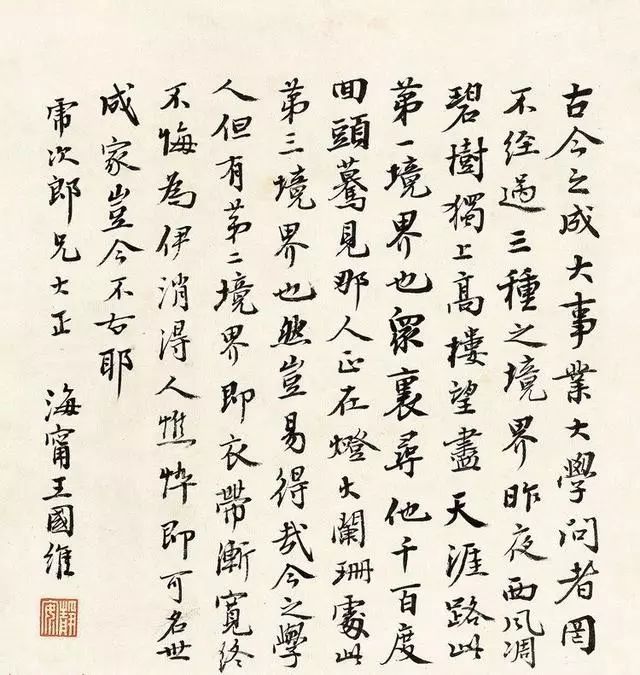 古今之成大事業大學问者罔
不经過三種之境界昨夜西风凋
碧樹獨上高樓望盡天涯路此
第一境界也眾裏尋他千百度
回頭驀見那人正在燈火闌珊處此
第三境界也然豈易得哉今之學
人但有第二境界即衣帶漸寬终
不悔為伊消得人憔悴即可名世
成家豈今不古耶
次郎兄大正
海甯王國維
靜安